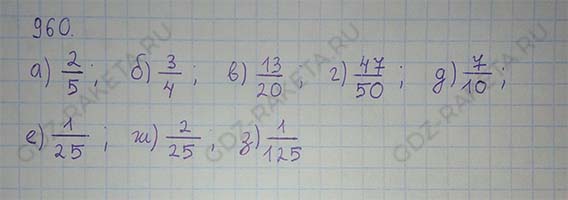 960.
а) 2/5; б) 3/4; в) 13/20; г) 47/50; д) 7/10;
е) 1/25; ж) 2/25; з) 1/125
GDZ-RAKETA.RU
GDZ-RAKETA.RU
GDZ-RAKETA.RU